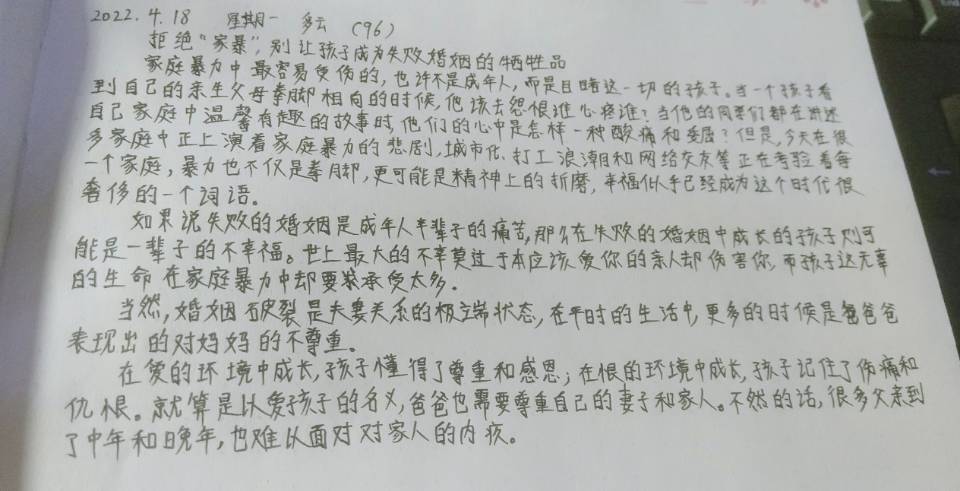 2022.4.18 星期一 多云 (96)
拒绝“家暴”,别让孩子成为失败婚姻的牺牲品
家庭暴力中最容易受伤的,也许不是成年人,而是目睹这一切的孩子。当一个孩子看
到自己的亲生父母拳脚相向的时候,他该去怨恨谁心疼谁?当他的同学们都在讲述
自己家庭中温馨有趣的故事时,他们的心中是怎样一种酸痛和委屈?但是,今天在很
多家庭中正上演着家庭暴力的悲剧,城市化、打工浪潮和网络交友等正在考验着每
一个家庭,暴力也不仅是拳脚,更可能是精神上的折磨,幸福似乎已经成为这个时代很
奢侈的一个词语。
如果说失败的婚姻是成年人半辈子的痛苦,那么在失败的婚姻中成长的孩子则可
能是一辈子的不幸福。世上最大的不幸莫过于本应该爱你的亲人却伤害你,而孩子这无辜
的生命在家庭暴力中却要承受太多.
当然,婚姻破裂是夫妻关系的极端状态,在平时的生活中,更多的时候是爸爸
表现出的对妈妈的不尊重。
在爱的环境中成长,孩子懂得了尊重和感恩;在恨的环境中成长,孩子记住了伤痛和
仇恨。就算是以爱孩子的名义,爸爸也需要尊重自己的妻子和家人。不然的话,很多父亲到
了中年和晚年,也难以面对对家人的内疚。